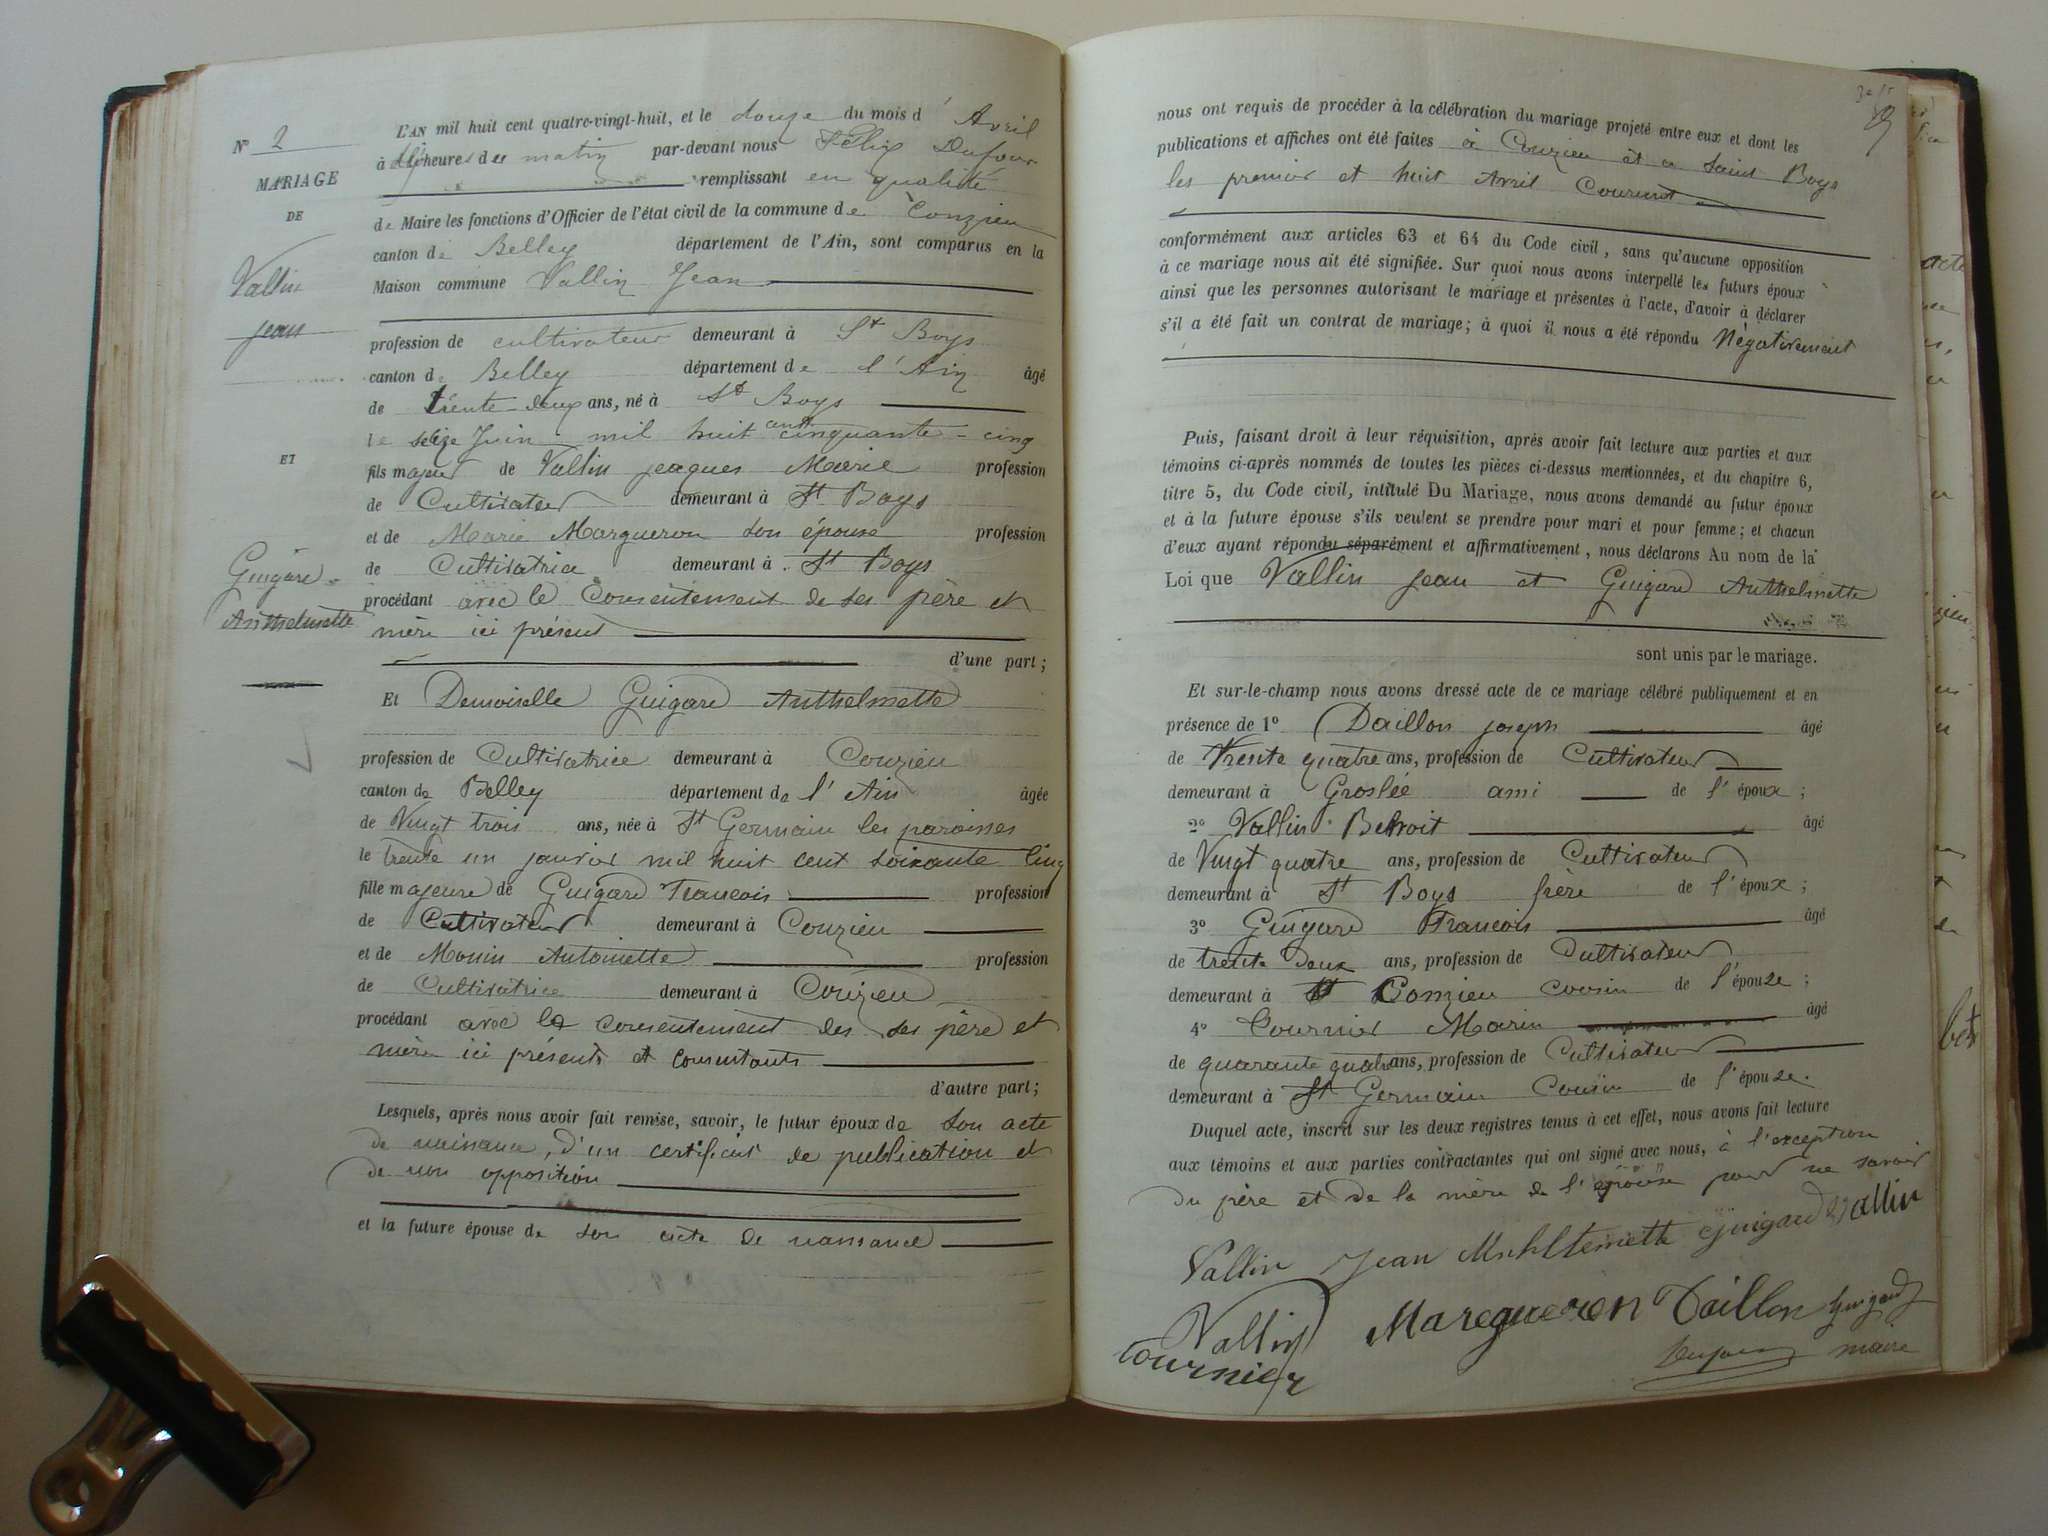 N° 2
MARIAGE
DE
Vallin
Jean
ET
Guigard
Anthelmette
L'AN mil huit cent quatre-vingt-huit, et le douze du mois d'Avril
à dix heures du matin par-devant nous Félix Dufour
remplissant en qualité
de Maire les fonctions d'Officier de l'état civil de la commune de Conzieu
canton de Belley département de l'Ain, sont comparus en la
Maison commune Vallin Jean
profession de cultivateur demeurant à St Boys
canton de Belley département de l'Ain âgé
de trente-deux ans, né à St Boys
le seize Juin mil huit cent cinquante-cinq
fils majeur de Vallin jacques Marie profession
de Cultivateur demeurant à St Boys
et de Marie Margueron son épouse profession
de Cultivatrice demeurant à St Boys
procédant avec le Consentement de ses père et
mère ici présent
d'une part;
Et Demoiselle Guigard Anthelmette
profession de Cultivatrice demeurant à Conzieu
canton de Belley département de l'Ain âgée
de Vingt trois ans, née à St Germain les paroisses
le trente un janvier mil huit cent soixante cinq
fille majeure de Guigard Francois profession
de Cultivateur demeurant à Conzieu
et de Monin Antoinette profession
de Cultivatrice demeurant à Conzieu
procédant avec le consentement des ses père et
mère ici présents et consentants
d'autre part;
Lesquels, après nous avoir fait remise, savoir, le futur époux de son acte
de naissance, d'un certificat de publication et
de non opposition
et la future épouse de son acte de naissance
nous ont requis de procéder à la célébration du mariage projeté entre eux et dont les
publications et affiches ont été faites à Conzieu et a Saint Boys
les premier et huit Avril Courant
conformément aux articles 63 et 64 du Code civil, sans qu'aucune opposition
à ce mariage nous ait été signifiée. Sur quoi nous avons interpellé les futurs époux
ainsi que les personnes autorisant le mariage et présentes à l'acte, d'avoir à déclarer
s'il a été fait un contrat de mariage; à quoi il nous a été répondu Négativement
Puis, faisant droit à leur réquisition, après avoir fait lecture aux parties et aux
témoins ci-après nommés de toutes les pièces ci-dessus mentionnées, et du chapitre 6,
titre 5, du Code civil, intitulé Du Mariage, nous avons demandé au futur époux
et à la future épouse s'ils veulent se prendre pour mari et pour femme; et chacun
d'eux ayant répondu séparément et affirmativement, nous déclarons Au nom de la
Loi que Vallin Jean et Guigard Anthelmette
sont unis par le mariage.
Et sur-le-champ nous avons dressé acte de ce mariage célébré publiquement et en
présence de 1° Daillon joseph âgé
de Trente quatre ans, profession de Cultivateur
demeurant à Groslée ami de l'époux;
2° Vallin Benoit âgé
de Vingt quatre ans, profession de Cultivateur
demeurant à St Boys frère de l'époux;
3° Guigard Francois âgé
de trente deux ans, profession de Cultivateur
demeurant à Conzieu cousin de l'épouse;
4° Cournier Marin âgé
de quarante quatre ans, profession de Cultivateur
demeurant à St Germain Cousin de l'épouse.
Duquel acte, inscrit sur les deux registres tenus à cet effet, nous avons fait lecture
aux témoins et aux parties contractantes qui ont signé avec nous, à l'exception
du père et de la mère de l'épouse pour ne savoir
Vallin Jean Guigard Vallin
Vallin Margueron Daillon Guigard
Cournier Dufour maire